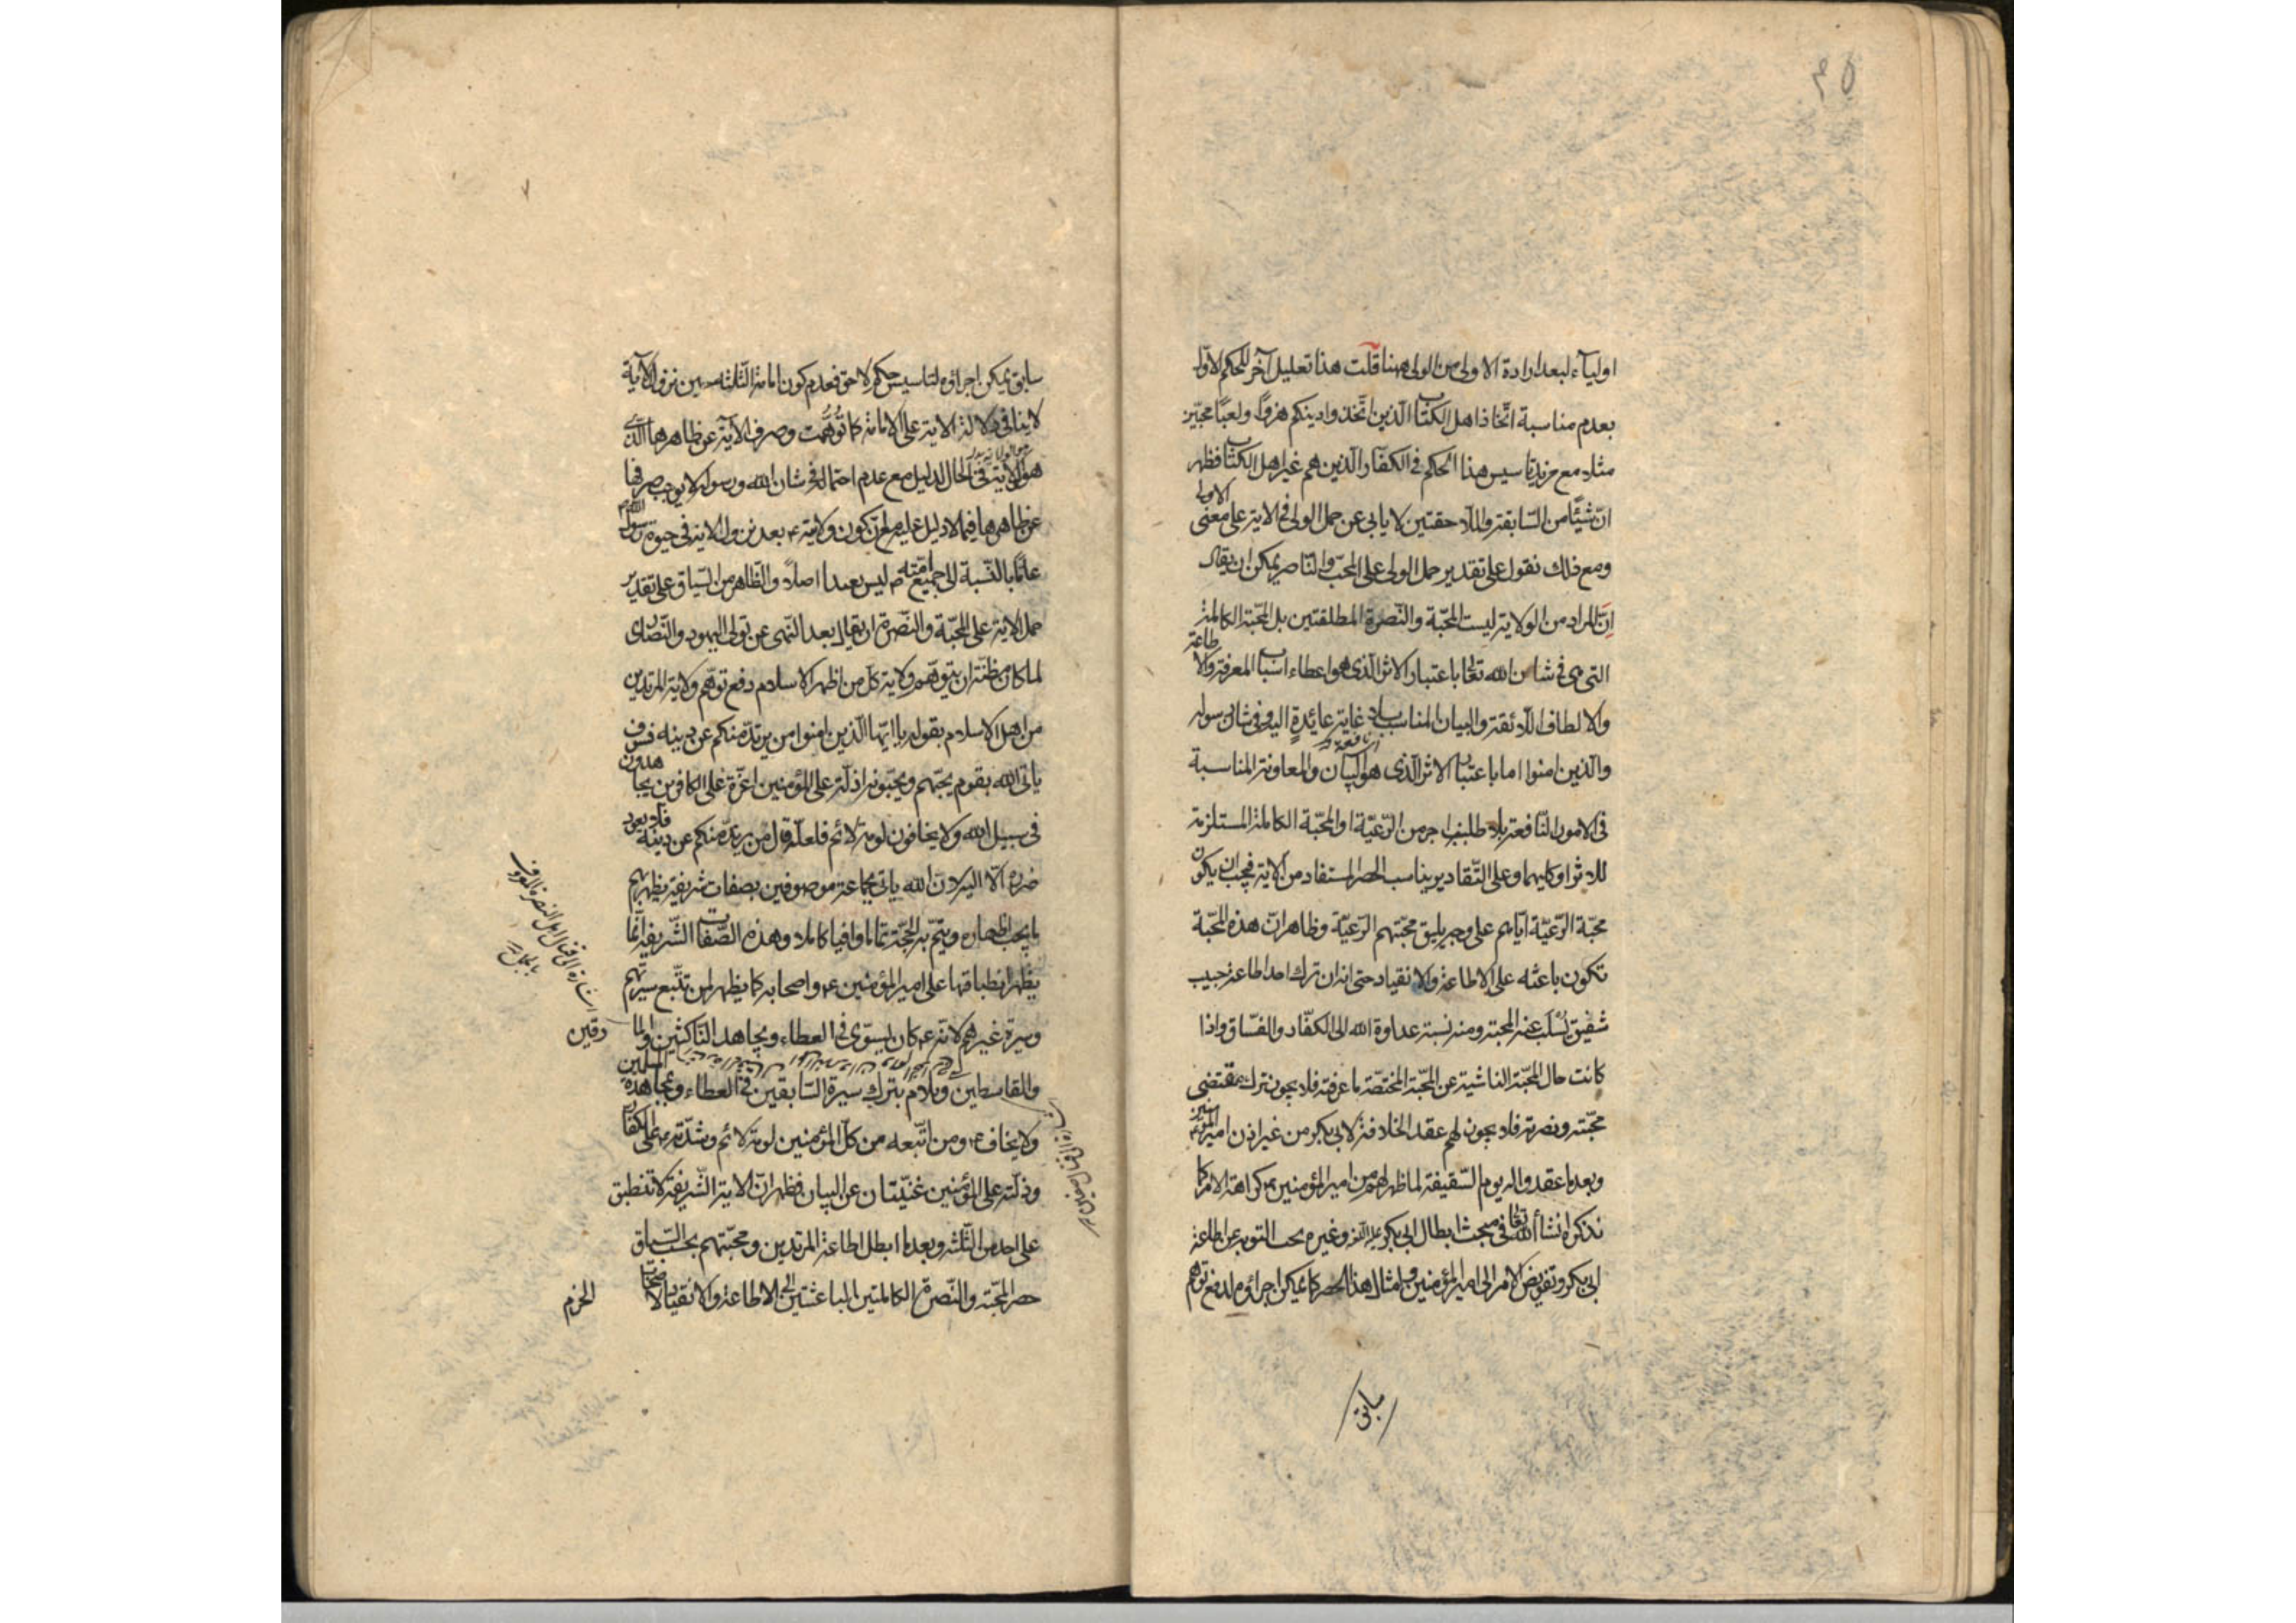 اولياء لبعد ارادة الاولى من الولى ههنا قلت هذا تعليل آخر للحكم الاول
بعدم مناسبة اتخاذ اهل الكتاب الذين اتخذوا دينكم هزوا ولعبا محبين
مثلا مع مزيد تاسيس هذا الحكم فى الكفار الذين هم غير اهل الكتاب فظهر
ان شيئا من السابقة واللاحقتين لا يابى عن حمل الولى فى الاية على معنى الاولى
ومع ذلك نقول على تقدير حمل الولى على المحب والناصر يمكن ان يقال
ان المراد من الولاية ليست المحبة والنصرة المطلقتين بل المحبة الكاملة
التى هى فى شان الله تعالى باعتبار الاثر الذى هو اعطاء اسباب المعرفة والاطاعة
والالطاف اللائقة والبيان المناسب بلا غاية عائدة اليه وفى شان رسوله
والذين امنوا اما باعتبار الاثر الذى هو البيان والمعاونة المناسبة
فى الامور النافعة بلا طلب اجر من الرعية او المحبة الكاملة المستلزمة
للاثر او كليهما وعلى التقادير يناسب الحصر المستفاد من الاية فيجب ان يكون
محبة الرعية اياهم على وجه يليق محبتهم الرعية وظاهر ان هذه المحبة
تكون باعثه على الاطاعة والانقياد حتى انه ان ترك احد اطاعة حبيب
شفيق يسلب عنه المحبة ومنه نسبة عداوة الله الى الكفار والفساق واذا
كانت حال المحبة الناشية عن المحبة المختصة ما عرفته فلا يجوز ترك مقتضى
محبته ونصرته فلا يجوز لهم عقد الخلافة لابى بكر من غير اذن امير المؤمنين
وبعد ما عقدوا له يوم السقيفة لما ظهر لهم من امير المؤمنين كراهة الامر كما
نذكر ان شاء الله تعالى فى مبحث ابطال ابى بكر وغيره يجب التوبة عن اطاعة
ابى بكر وتفويض الامر الى امير المؤمنين ومثال هذا الحصر كما يمكن اجراؤه لدفع توهم
سابق
سابق يمكن اجراؤه لتاسيس حكم لاحق فعدم كون امامة الثلثة حين نزول الاية
لا ينافى دلالة الاية على الامامة كما توهمت وصرف الاية عن ظاهرها الذى
هو الولاية فى الحال لدليل مع عدم احتماله فى شان الله ورسوله لا يوجب صرفها
عن ظاهرها فيما لا دليل عليه مع ان كون ولايته ع بعد نزول الاية فى حيوة رسول الله
عاما بالنسبة الى جميع امته ص ليس بعيدا اصلا والظاهر من السياق على تقدير
حمل الاية على المحبة والنصرة ان يقال بعد النهى عن تولى اليهود والنصارى
لما كان مظنة ان يتوهم ولاية كل من اظهر الاسلام دفع توهم ولاية المرتدين
من اهل الاسلام بقوله يا ايها الذين امنوا من يرتد منكم عن دينه فسوف
ياتى الله بقوم يحبهم ويحبونه اذلة على المؤمنين اعزة على الكافرين يجاهدون
فى سبيل الله ولا يخافون لومة لائم فلعله قال من يرتد منكم عن دينه فلا يعود
ضرره الا اليه لان الله ياتى بجماعة موصوفين بصفات شريفة يظهر بهم
ما يجب اظهاره ويتم به الحجة تماما وافيا كاملا وهذه الصفات الشريفة انما
يظهر انطباقها على امير المؤمنين ع واصحابه كما يظهر لمن تتبع سيرتهم
وسيرة غيرهم لانه ع كان يسوى فى العطاء ويجاهد الناكثين والمارقين
والقاسطين ويلام بترك سيرة السابقين فى العطاء ومجاهدة المسلمين
ولا يخاف هو ومن اتبعه من كل المؤمنين لومة لائم وشدته ع على الكفار
وذلته على المؤمنين غنيتان عن البيان فظهر ان الاية الشريفة لا تنطبق
على احد من الثلثة وبعد ما ابطل اطاعة المرتدين ومحبتهم بحسب السياق
حصر المحبة والنصرة الكاملتين الباعثتين الى الاطاعة والانقياد